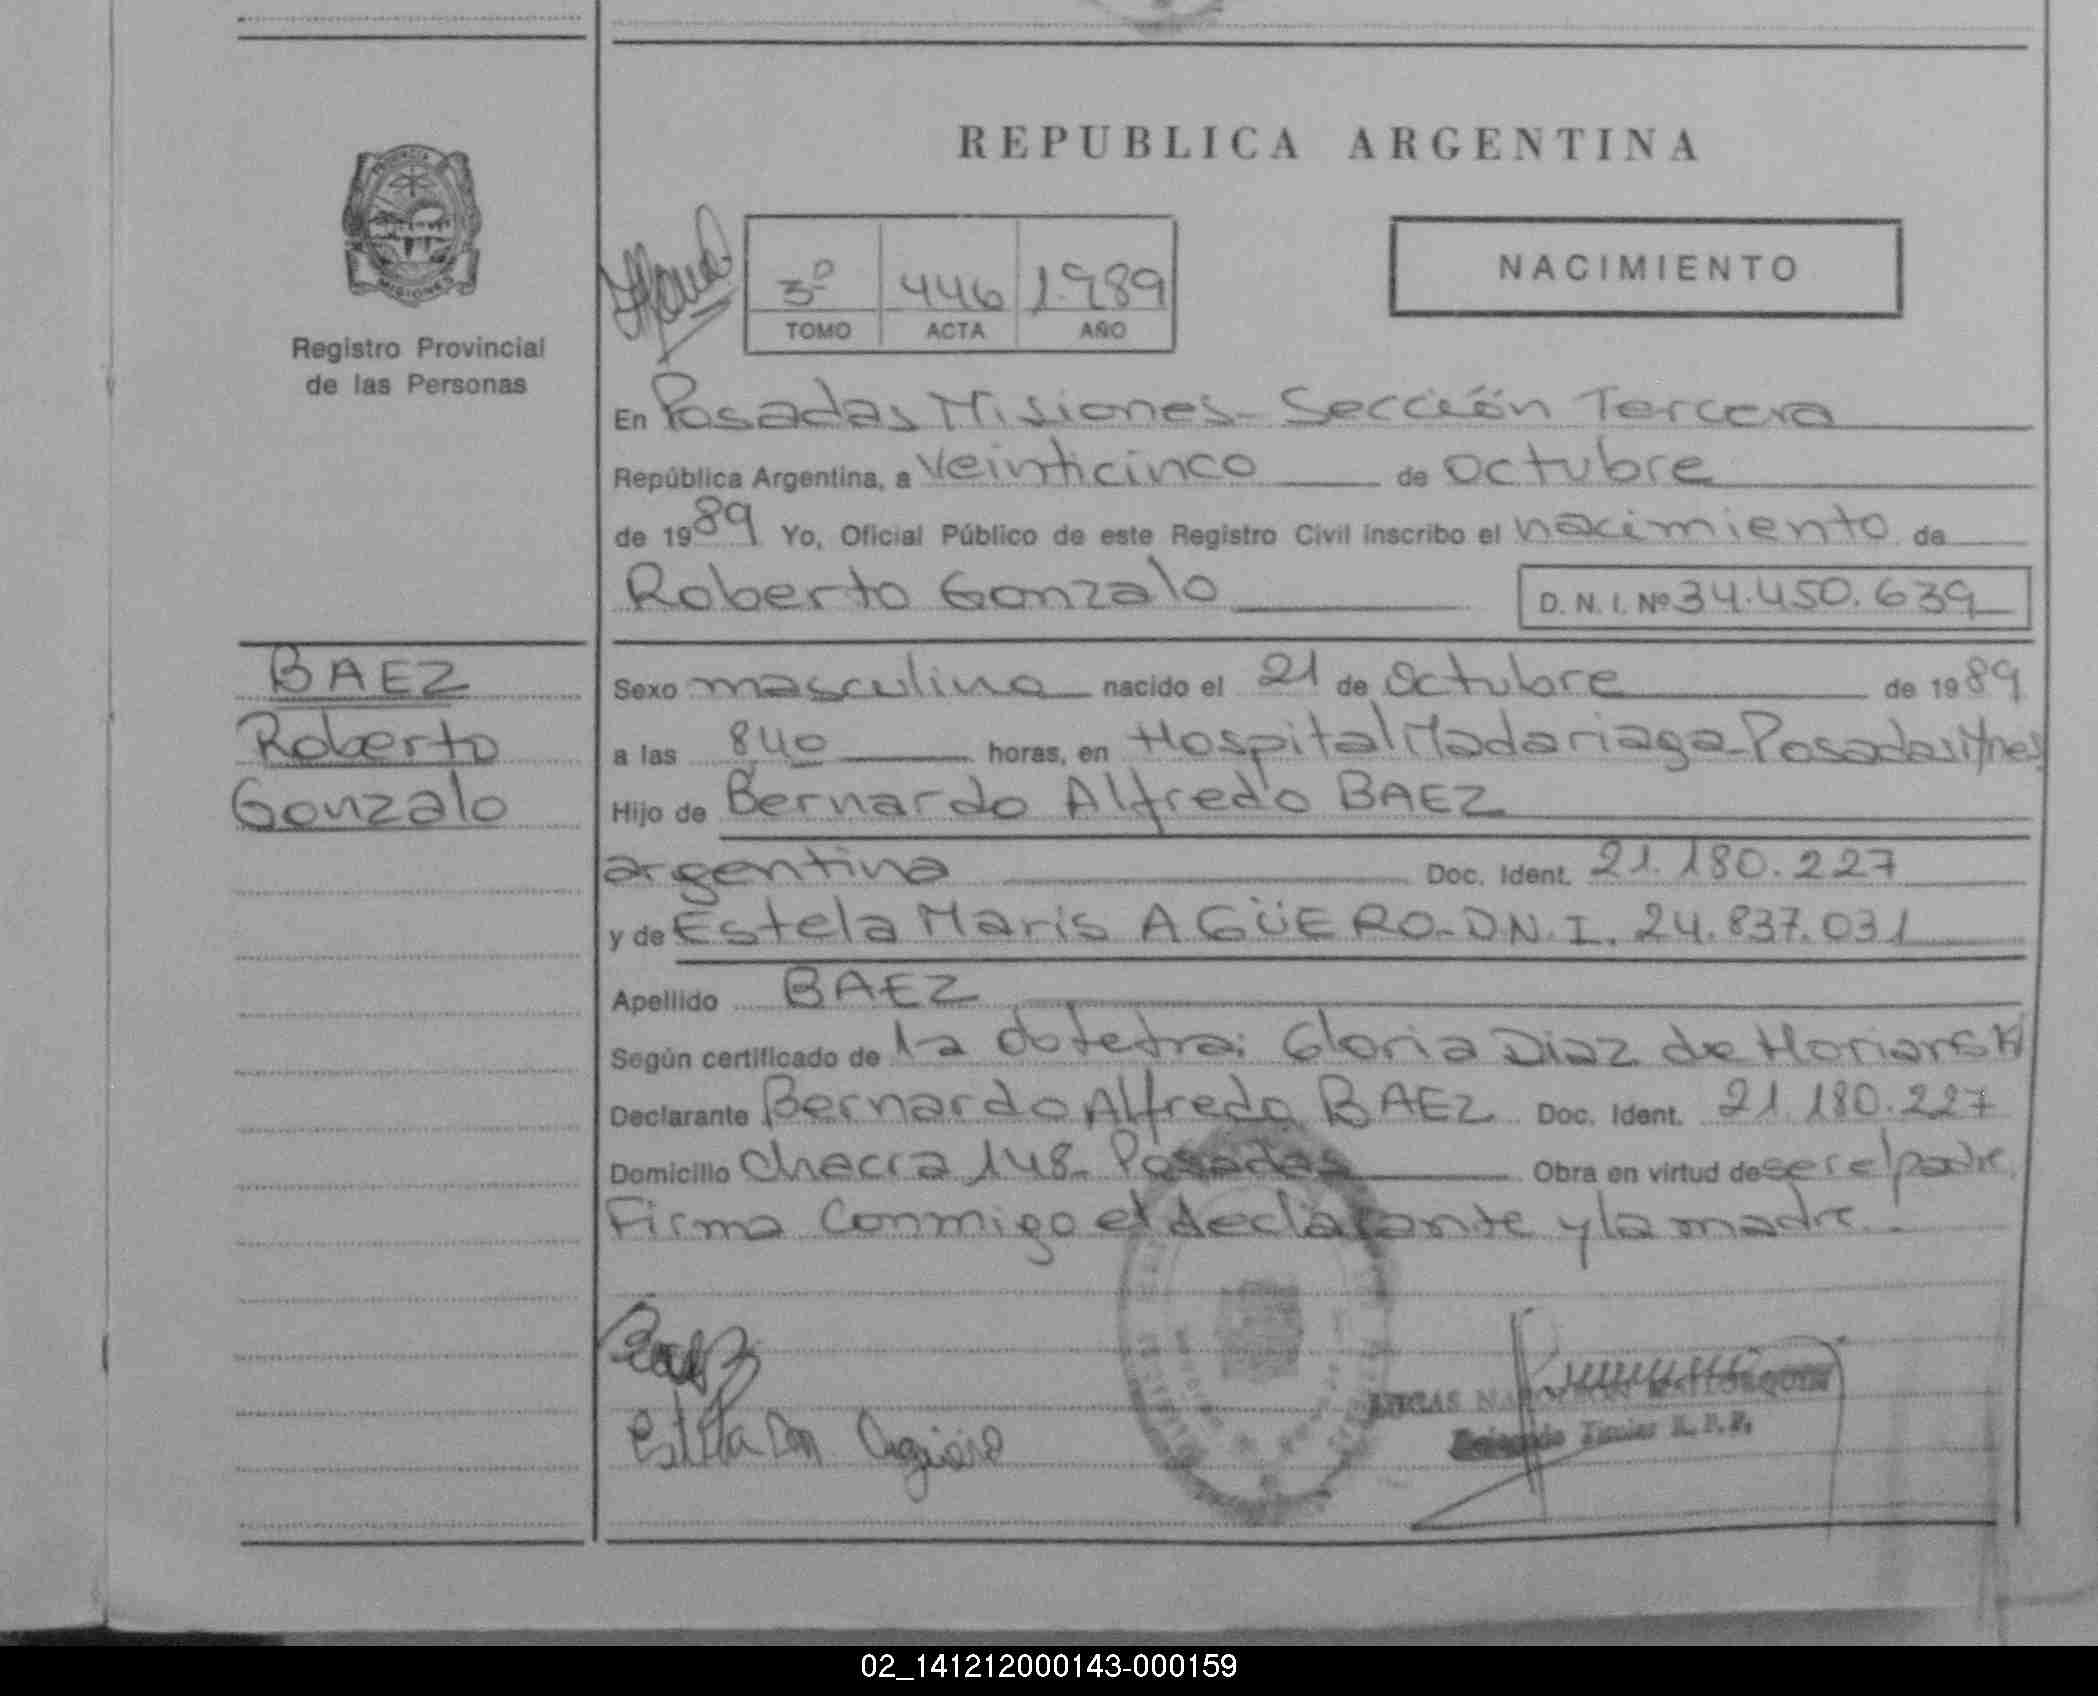 REPUBLICA ARGENTINA
PROVINCIA
MISIONES
Registro Provincial
de las Personas
3º 446 1.989
TOMO ACTA AÑO
NACIMIENTO
En Posadas Misiones- Sección Tercera
República Argentina, a Veinticinco de octubre
de 1989 Yo, Oficial Público de este Registro Civil inscribo el nacimiento de
Roberto Gonzalo D. N. I. Nº 34.450.639
BAEZ
Roberto
Gonzalo
Sexo masculino nacido el 21 de octubre de 1989
a las 840 horas, en Hospital Madariaga-Posadas Mnes
Hijo de Bernardo Alfredo BAEZ
argentina Doc. Ident. 21.180.227
y de Estela Maris AGÜERO-D.N.I. 24.837.031
Apellido BAEZ
Según certificado de la Gloria Diaz de
Declarante Bernardo Alfredo BAEZ Doc. Ident. 21.180.227
Domicilio chacra 148- Posadas Obra en virtud de ser el padre
Firma Conmigo el declarante y la madre.
02_141212000143-000159